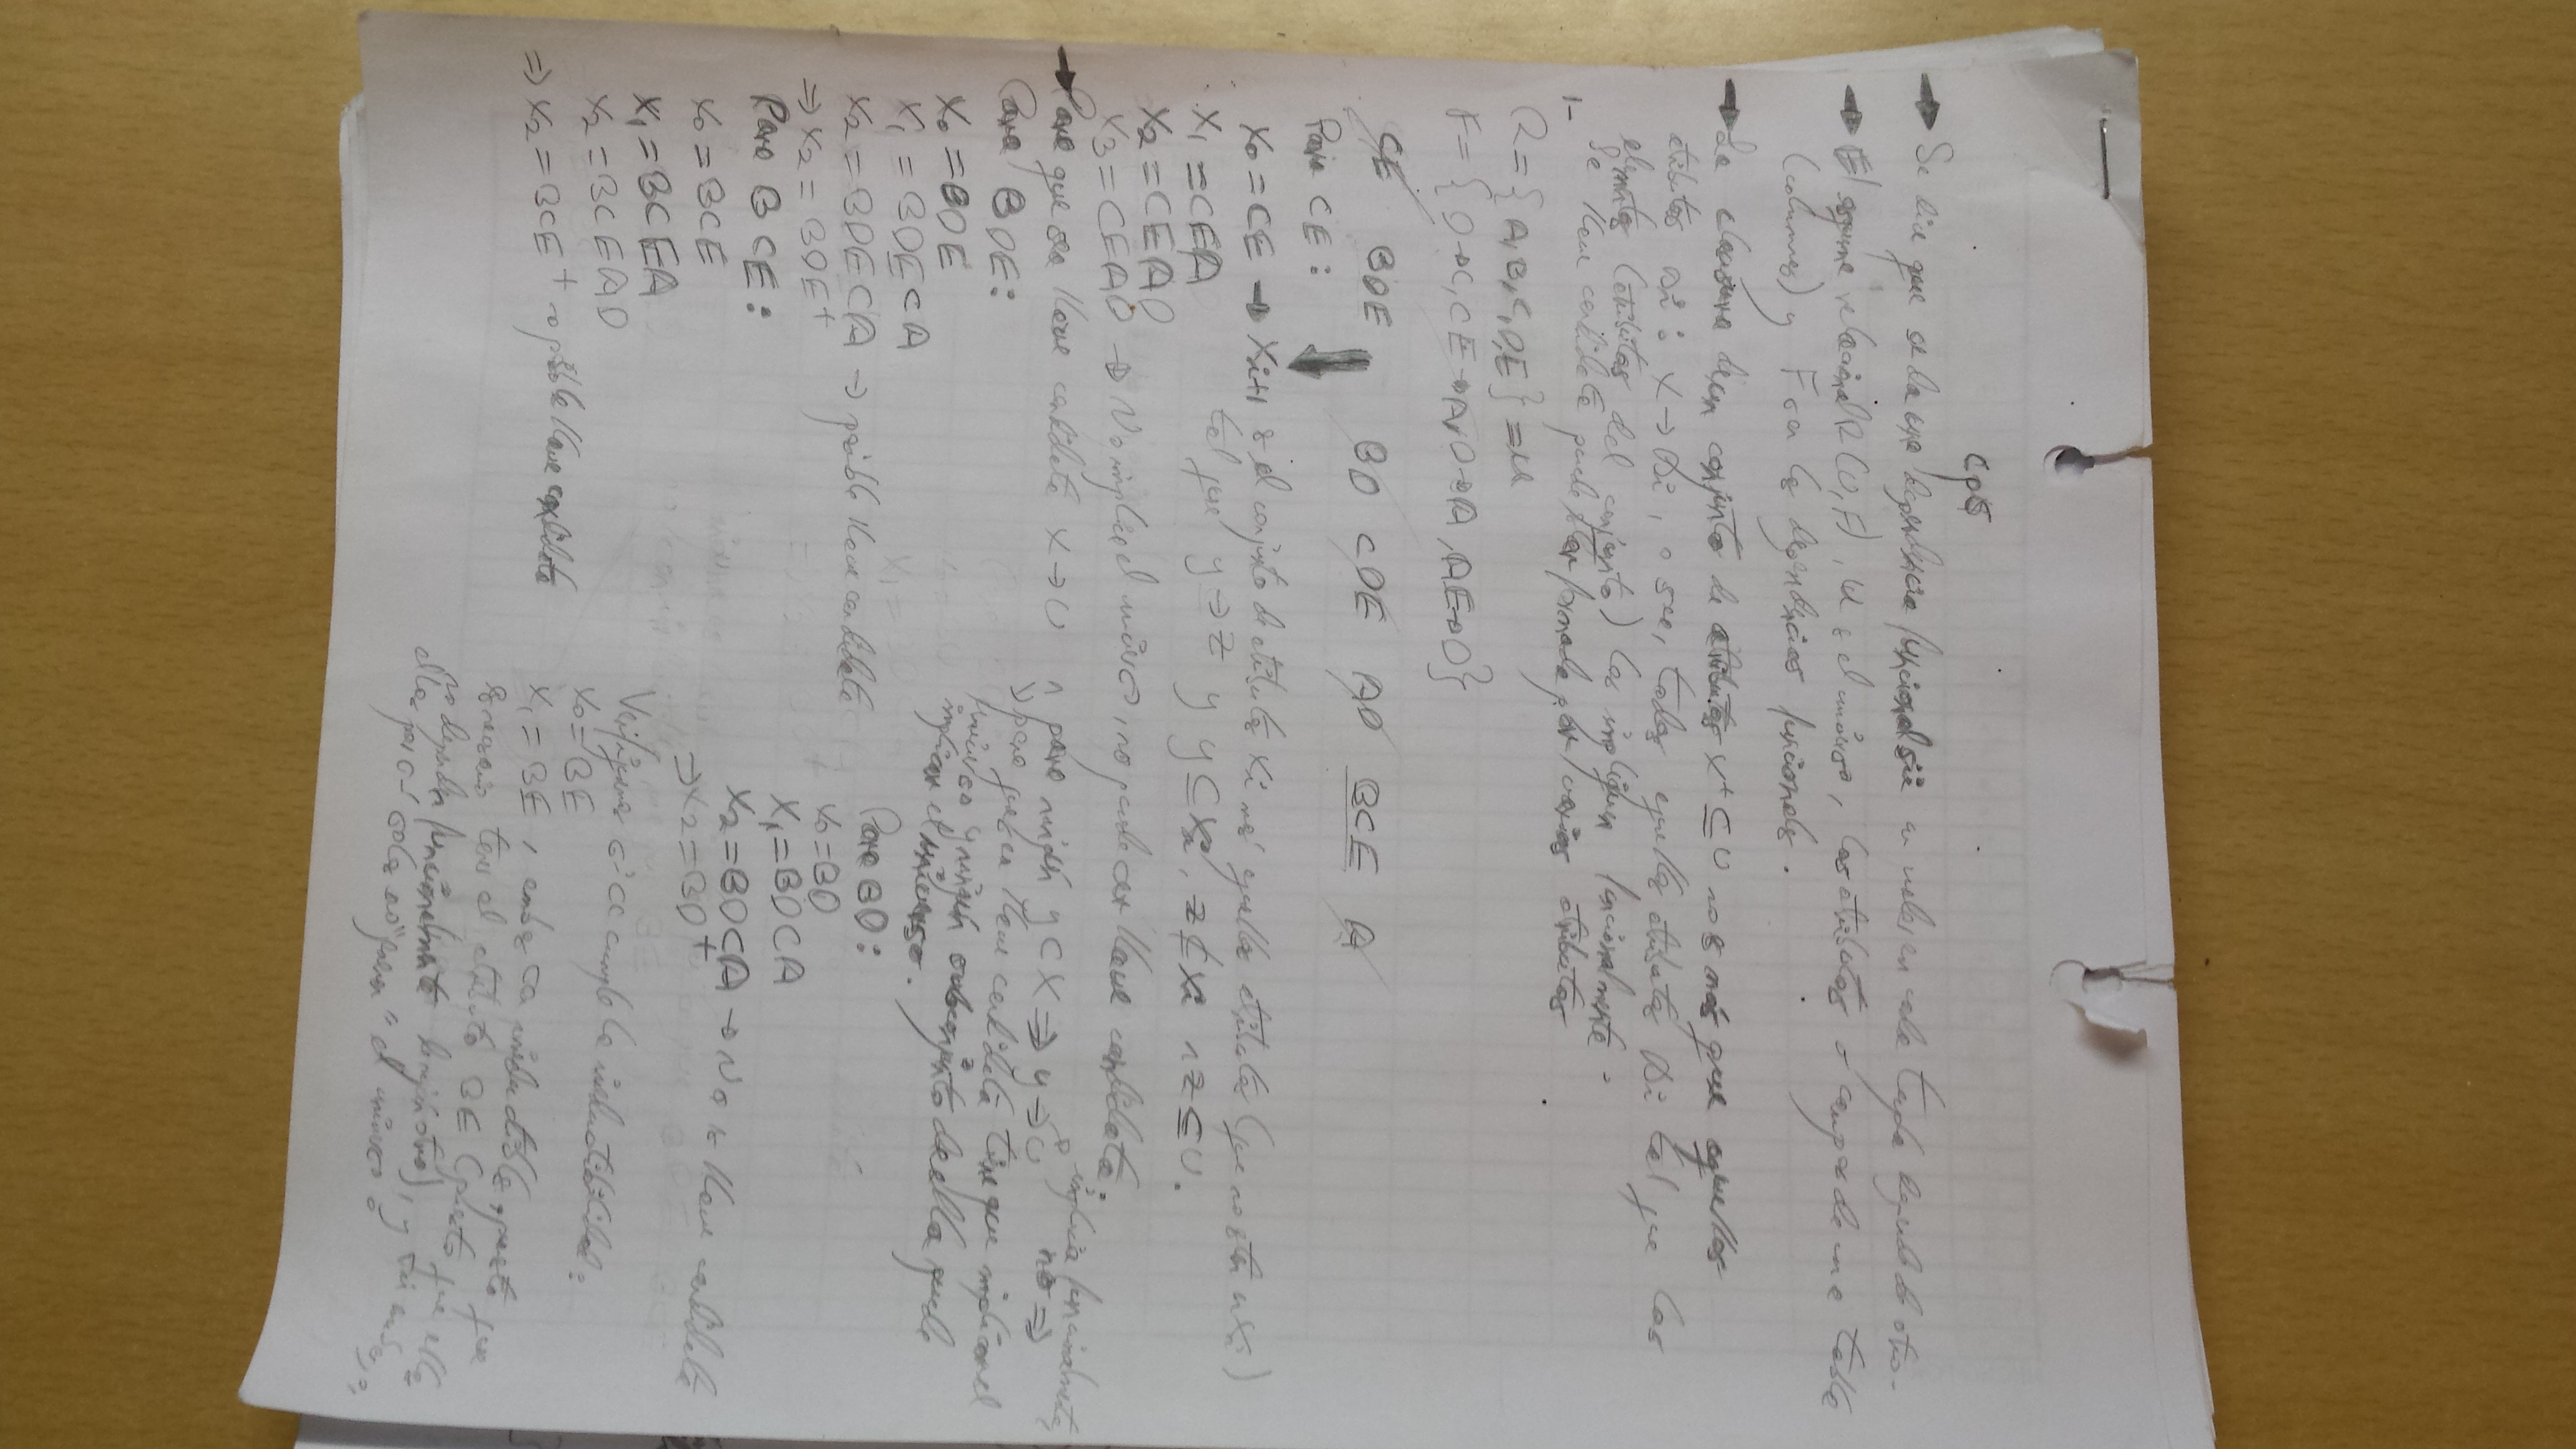 cp5
→ Se dice que se da una dependencia funcional sii un valor en cada tupla depende de otro.
→ El esquema relacional R(U,F), U es el universo, los atributos o campos de una tabla
(columnas) y F son las dependencias funcionales.
→ La clausura de un conjunto de atributos X+ ⊆ U no es más que aquellos
atributos Ai : X → Ai, o sea, todos aquellos atributos Ai tal que los
elementos (atributos del conjunto) los impliquen funcionalmente.
La llave candidata puede estar formada por varios atributos
1-
R = {A,B,C,D,E} = U
F = {D→C, CE→A, D→A, AE→D}
CE BDE BD CDE AD BCE A
Para CE:
X0 = CE → Xi+1 es el conjunto de atributos Xi más aquellos atributos (que no están en Xi)
tal que y→z y y⊆Xi, z⊄Xi ∧ z⊆U.
X1 = CEA
X2 = CEAD
X3 = CEAD → No implica el universo, no puede ser llave candidata.
→ Para que sea llave candidata X→U ∧ para ningún y⊂X ⇒ y→U
implica funcionalmente, no ⇒
para que sea llave candidata tiene que implicar el
universo y ningún subconjunto de ella puede
implicar el universo.
Para BDE:
X0 = BDE
X1 = BDECA
X2 = BDECA → posible llave candidata
⇒ X2 = BDE+
Para BCE:
X0 = BCE
X1 = BCEA
X2 = BCEAD
⇒ X2 = BCE+ → posible llave candidata
Para BD:
X0 = BD
X1 = BDCA
X2 = BDCA → No es llave candidata
⇒ X2 = BD+
Verifiquemos si se cumple la irreductibilidad:
X0 = BE
X1 = BE, ambas son irreductibles, puesto que
es necesario tener el atributo BE (puesto que ellos
no dependen funcionalmente de ningún otro), y sin embargo,
ellos por sí solos no "generan" el universo